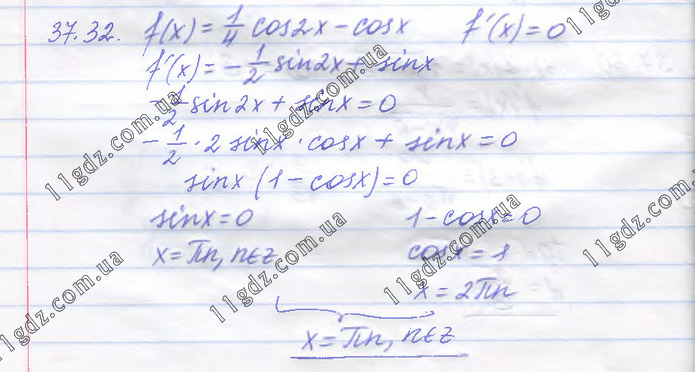 37.32. f(x) = 1/4 cos2x - cosx f'(x) = 0
f'(x) = - 1/2 sin2x + sinx
- 1/2 sin2x + sinx = 0
- 1/2 · 2 sinx · cosx + sinx = 0
sinx (1 - cosx) = 0
sinx = 0 1 - cosx = 0
x = πn, n∈z cosx = 1
x = 2πn
x = πn, n∈z
11gdz.com.ua
11gdz.com.ua
11gdz.com.ua
11gdz.com.ua
11gdz.com.ua
11gdz.com.ua
11gdz.com.ua
11gdz.com.ua